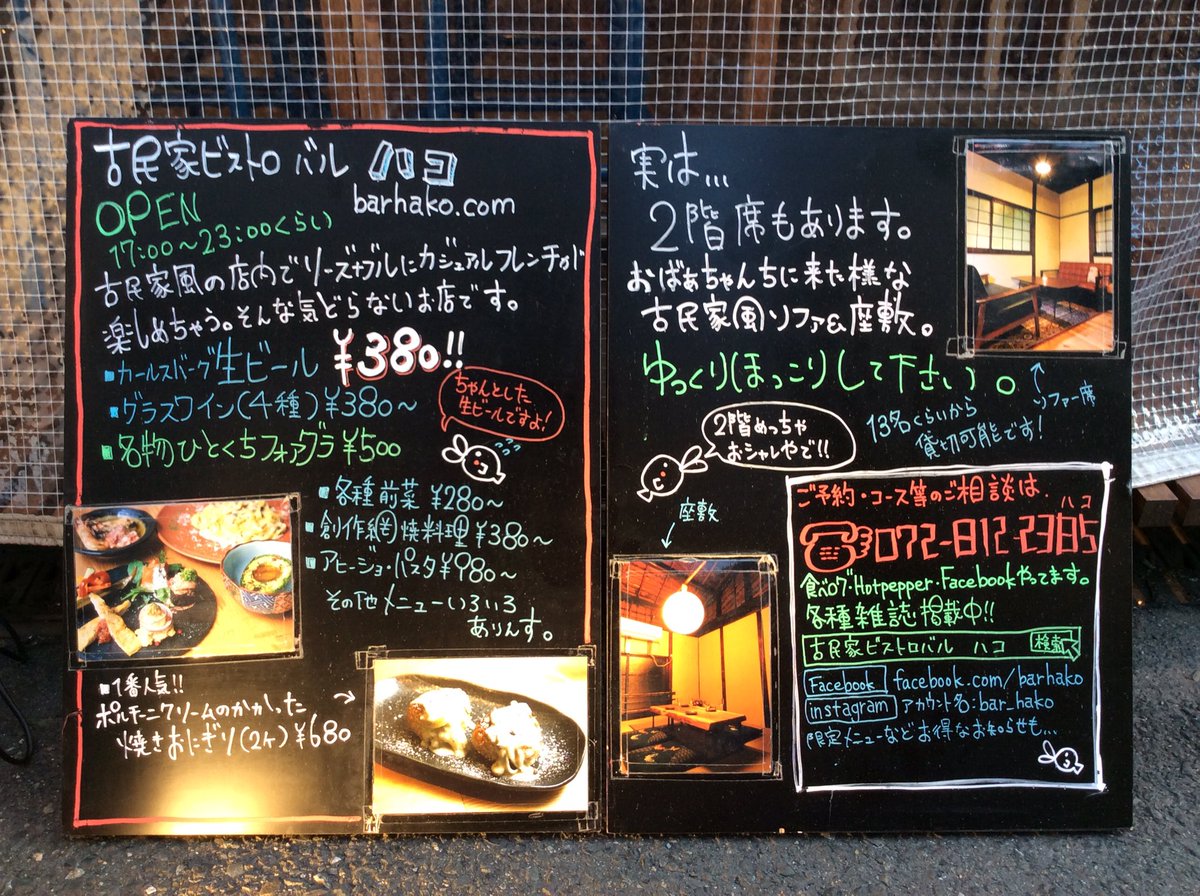 古民家ビストロ バル ハコ
barhako.com
OPEN
17:00〜23:00くらい
古民家風の店内でリーズナブルにカジュアルフレンチが
楽しめちゃう。そんな気どらないお店です。
▪カールスバーグ生ビール ¥380!!
ちゃんとした
生ビールですよ!
▪グラスワイン(4種)¥380〜
▪名物ひとくちフォアグラ¥500
▪各種前菜 ¥280〜
▪創作鉄板焼料理 ¥380〜
▪アヒージョ・パスタ¥980〜
その他メニューいろいろ
ありんす。
▪1番人気!!
ポルチーニクリームのかかった
焼きおにぎり(2ヶ)¥680
実は...
2階席もあります。
おばぁちゃんちに来た様な
古民家風ソファ&座敷。
ゆっくりほっこりして下さい)。
ソファー席
13名くらいから
貸切可能です!
2階めっちゃ
おシャレやで!!
座敷
ご予約・コース等のご相談は
ハコ
072-812-2385
食べログ・Hotpepper・Facebookやってます。
各種雑誌掲載中!!
古民家ビストロバル ハコ 検索
Facebook facebook.com/barhako
instagram アカウント名:bar_hako
限定メニューなどお得なお知らせも...